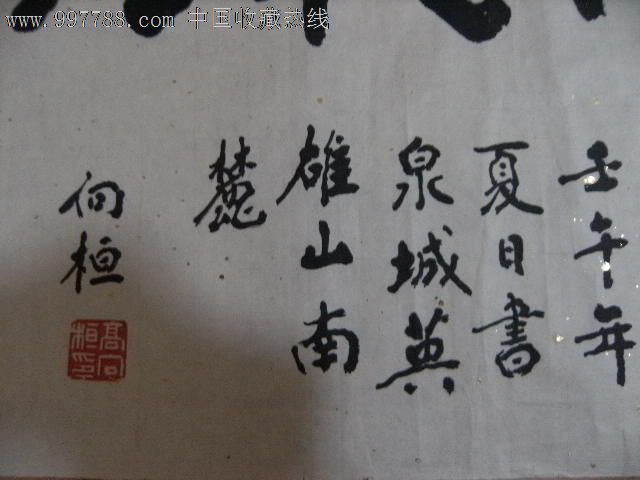 www.997788.com 中国收藏热线
壬午年
夏日書
泉城英
雄山南
麓
向桓
高向
桓印